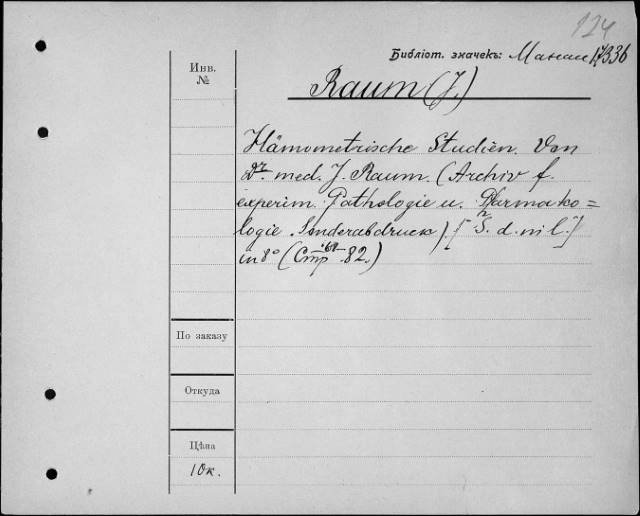 124
Библіот. значекъ: Махаи 17/336
Инв.
№
Raum (J.)
Hämometrische Studien. Von
Dr. med. J. Raum. (Archiv f.
experim. Pathologie u. Pharmako=
logie. Sonderabdruck). [S. d. ni l.]
in 8° (Стр. 82.)
По заказу
Откуда
Цѣна
10к.